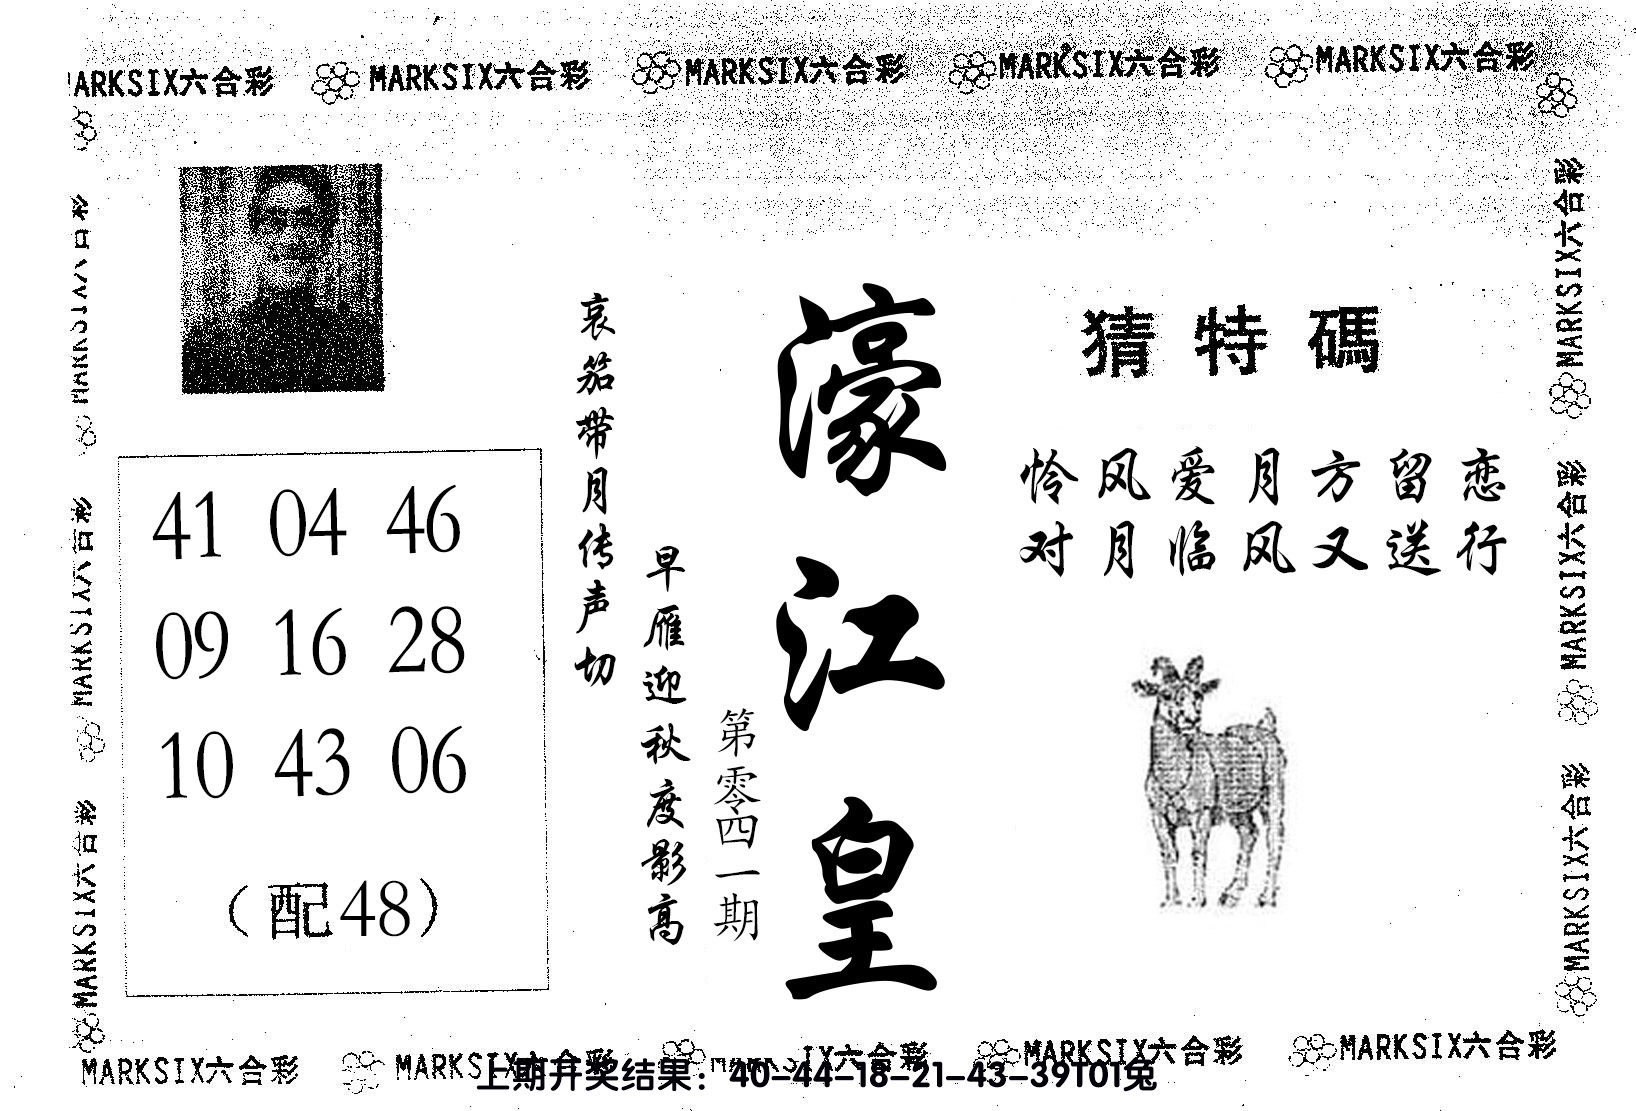 MARKSIX六合彩 MARKSIX六合彩 MARKSIX六合彩 MARKSIX六合彩 MARKSIX六合彩
猜特碼
怜风爱月方留恋
对月临风又送行
濠江皇
第零四一期
早雁迎秋度影高
哀笳带月传声切
41 04 46
09 16 28
10 43 06
（配48）
MARKSIX六合彩
MARKSIX六合彩
MARKSIX六合彩
MARKSIX六合彩
MARKSIX六合彩
MARKSIX六合彩
MARKSIX六合彩 MARKSIX六合彩 IX六合彩 MARKSIX六合彩 MARKSIX六合彩
上期开奖结果：40-44-18-21-43-39T01兔